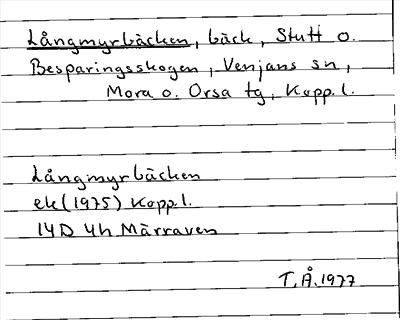 Långmyrbäcken, bäck, Stutt o.
Besparingsskogen, Venjans sn,
Mora o. Orsa tg, Kopp. l.
Långmyrbäcken
ek (1975) Kopp. l.
14D 4h Märraven
T. Å. 1977